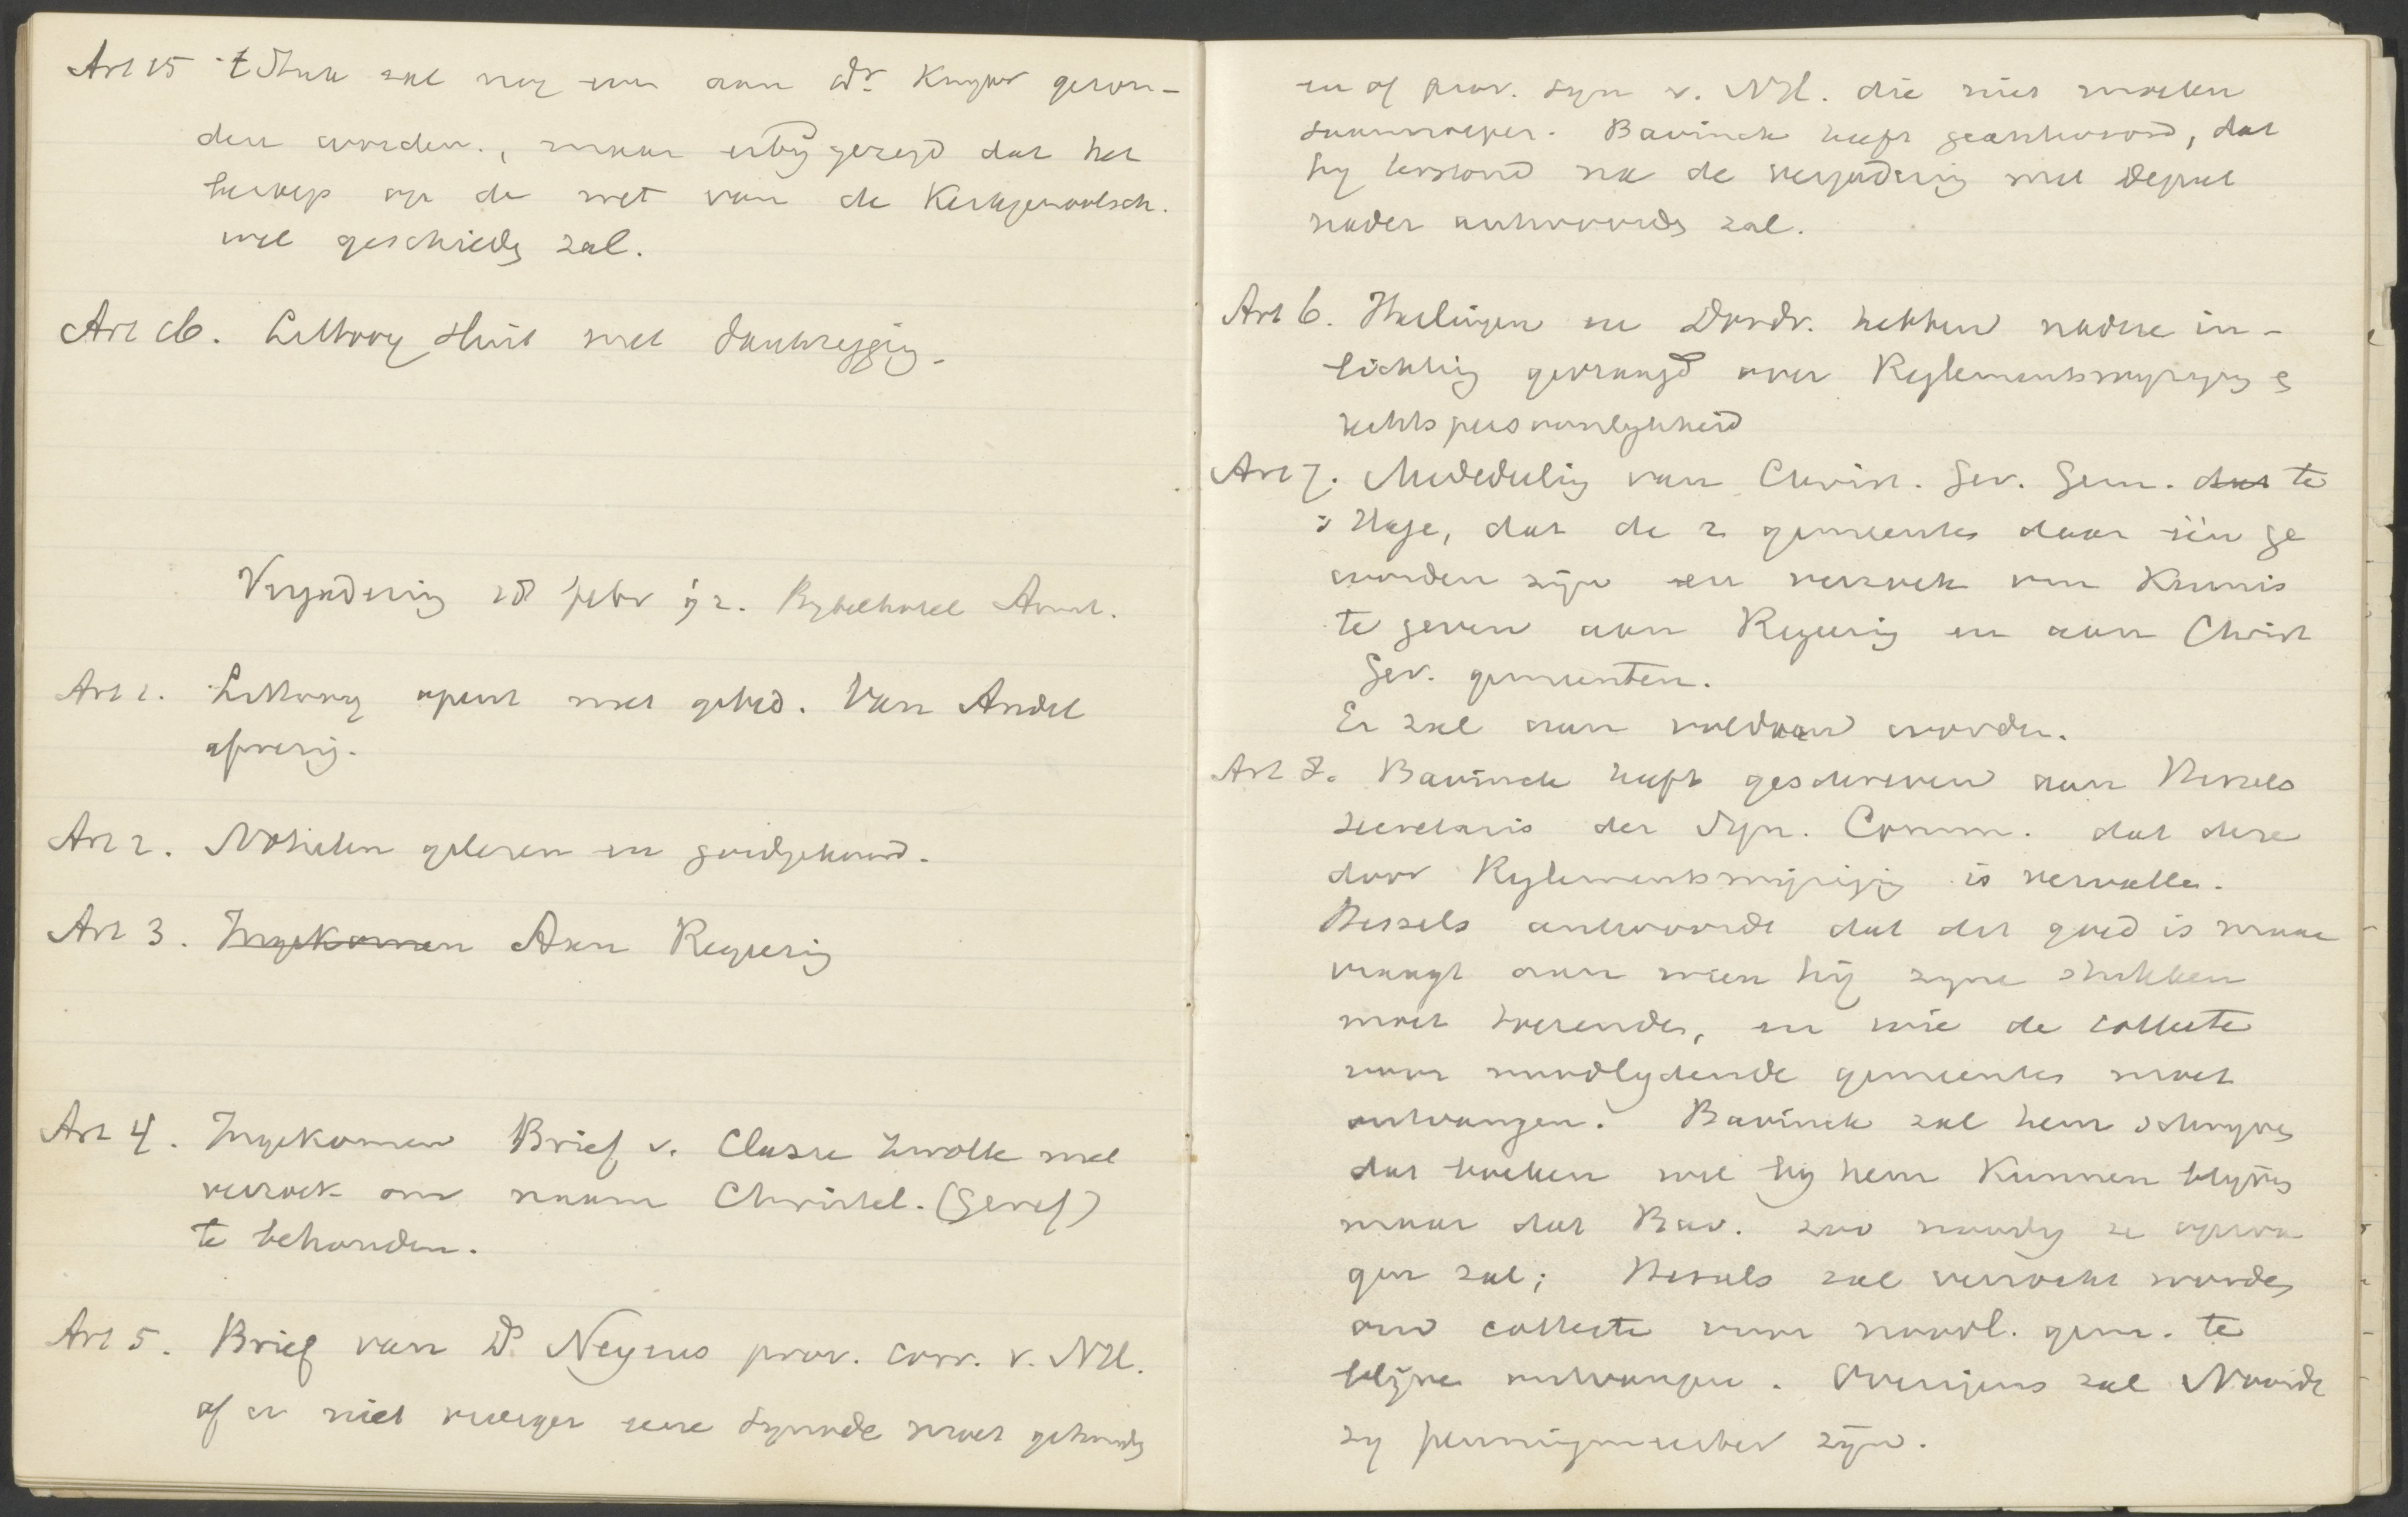 Art 15 't Stuk zal nog eens aan Dr. Kuyper gezon-
den worden., maar erbij gezegd dat het
beroep op de wet van de Kerkgenootsch.
wel geschieden zal.
Art 16. Littooy sluit met dankzegging.
Vergadering 28 febr 92. Bybelhotel Amst.
Art 1. Littooy opent met gebed. Van Andel
afwezig.
Art 2. Notulen gelezen en goedgekeurd.
Art 3. Ingekomen Aan Regering
Art 4. Ingekomen Brief v. Classe Zwolle met
verzoek om naam Christel. (Geref)
te behouden.
Art 5. Brief van Ds. Neyens prov. corr. v. NH.
of er niet vroeger eene Synode moet gehouden
en of prov. syn v. NH. die niet moeten
saamroepen. Bavinck heeft geantwoord, dat
hy terstond na de vergadering met Deput
nader antwoorden zal.
Art 6. Harlingen en Dordr. hebben nadere in-
lichting gevraagd over Reglementswyziging en
rechtspersoonlykheid
Art 7. Mededeeling van Christ. Ger. Gem. dat te
's Hage, dat de 2 gemeentes daar één ge
worden zijn en verzoek om Kennis
te geven aan Regering en aan Christ
Ger. gemeenten.
Er zal aan voldaan worden.
Art 8. Bavinck heeft geschreven aan Wessels
secretaris der Syn. Comm. dat deze
door Reglementswijziging is vervallen.
Wessels antwoordt dat dit goed is maar
vraagt aan wien hij zyne stukken
moet toezenden, en wie de collecte
voor noodlydende gemeentes moet
ontvangen. Bavinck zal hem schryven
dat boeken wel by hem Kunnen blyven
maar dat Bav. zoo noodig ze opvra
gen zal; Wessels zal verzocht worden
om collecte voor noodl. gem. te
blijven ontvangen. Overigens zal Noordt
zy penningmeester zijn.